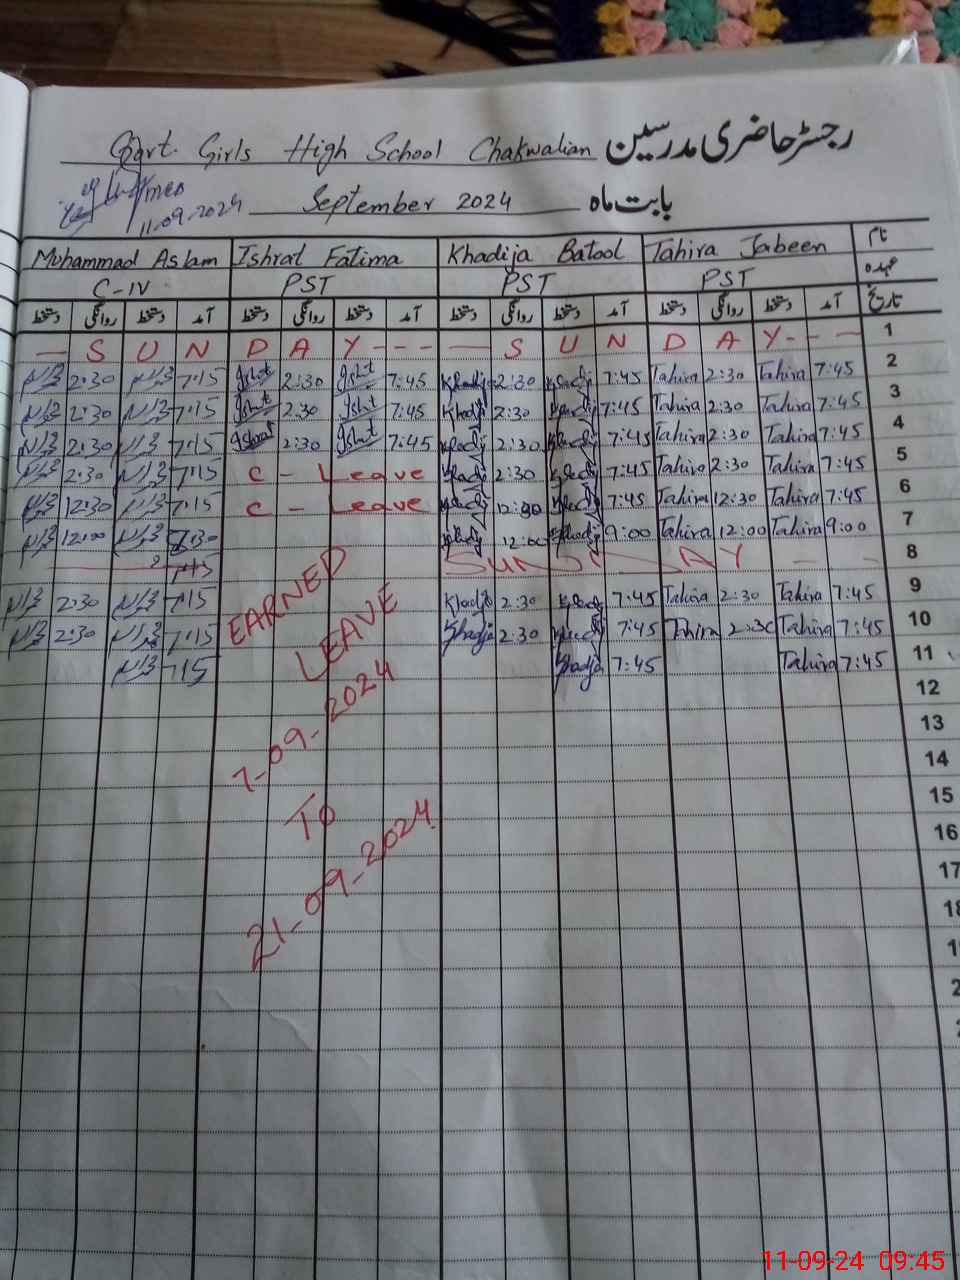 Govt. Girls High School Chakwalian رجسٹر حاضری مدرسین
11-09-2024 September 2024 بابت ماہ
Muhammad Aslam Ishrat Fatima Khadija Batool Tahira Jabeen نام
C-IV PST PST PST عہدہ
دستخط روانگی دستخط آمد دستخط روانگی دستخط آمد دستخط روانگی دستخط آمد دستخط روانگی دستخط آمد تاریخ
— S U N D A Y - - - — S U N D A Y - - — 1
2:30 7:15 Ishrat 2:30 Ishrat 7:45 Khadija 2:30 Khadija 7:45 Tahira 2:30 Tahira 7:45 2
2:30 7:15 Ishrat 2:30 Ishrat 7:45 Khadija 2:30 Khadija 7:45 Tahira 2:30 Tahira 7:45 3
2:30 7:15 Ishrat 2:30 Ishrat 7:45 Khadija 2:30 Khadija 7:45 Tahira 2:30 Tahira 7:45 4
2:30 7:15 C - Leave Khadija 2:30 Khadija 7:45 Tahira 2:30 Tahira 7:45 5
12:30 7:15 C - Leave Khadija 12:30 Khadija 7:45 Tahira 12:30 Tahira 7:45 6
12:00 Khadija 12:00 Khadija 9:00 Tahira 12:00 Tahira 9:00 7
SUNDAY — — 8
2:30 7:15 Khadija 2:30 Khadija 7:45 Tahira 2:30 Tahira 7:45 9
2:30 7:15 Khadija 2:30 Khadija 7:45 Tahira 2:30 Tahira 7:45 10
7:15 Khadija 7:45 Tahira 7:45 11
EARNED
LEAVE
7-09-2024
TO
21-09-2024
12
13
14
15
16
17
18
11-09-24 09:45